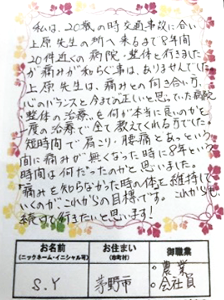 私は、20歳の時交通事故に合い
上原先生の所へ来るまで8年間
20件近くの病院・整体と行きました
が痛みが和らぐ事は、ありませんでした。
上原先生は、痛みとの向き合い方、
心のバランスと今まで正しいと思っていた
整体の治療を何が本当に良いのかを
度の治療で全て教えてくれる方でした。
短時間で肩こり・腰痛とあっという
間に痛みが無くなった時に8年という
時間は何だったのかと思いました。
"痛みを知らなかった時の体を維持して
いくのがこれからの目標です。これからも
続けて行きたいと思います!
お名前
(ニックネーム・イニシャル可)
お住まい
(市町村)
御職業
S.Y
茅野市
・農業
・会社員